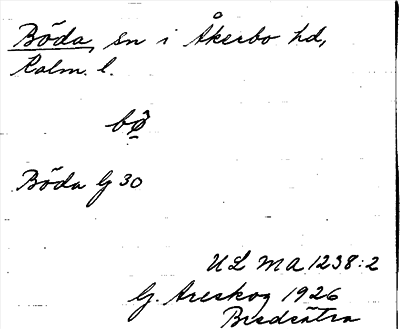 Böda, sn i Åkerbo hd,
Kalm. l.
Böda G 30
ULMA 1238:2
G. Areskog 1926
Bredsätra